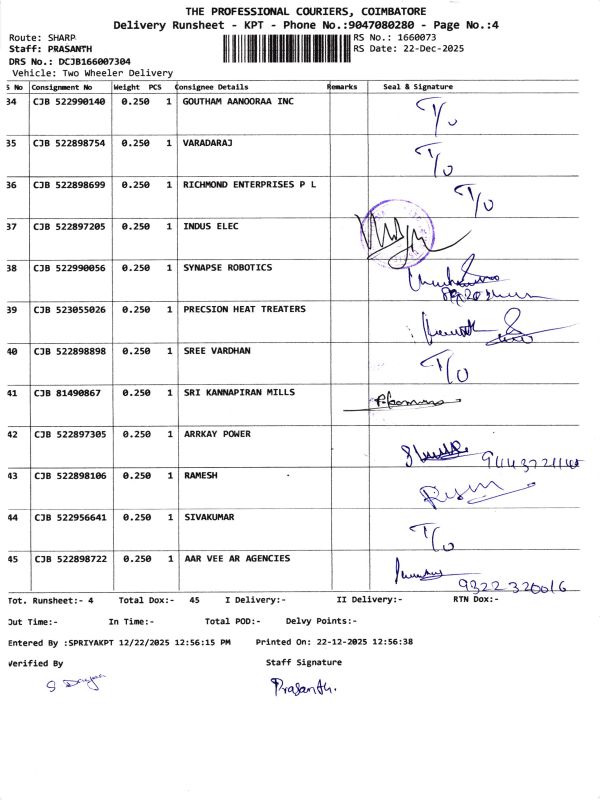 THE PROFESSIONAL COURIERS, COIMBATORE
Delivery Runsheet - KPT - Phone No.:9047080280 - Page No.:4
Route: SHARP
RS No.: 1660073
Staff: PRASANTH
RS Date: 22-Dec-2025
DRS No.: DCJB166007304
Vehicle: Two Wheeler Delivery
S No Consignment No Weight PCS Consignee Details Remarks Seal & Signature
34 CJB 522990140 0.250 1 GOUTHAM AANOORAA INC T/o
35 CJB 522898754 0.250 1 VARADARAJ T/o
36 CJB 522898699 0.250 1 RICHMOND ENTERPRISES P L T/o
37 CJB 522897205 0.250 1 INDUS ELEC
38 CJB 522990056 0.250 1 SYNAPSE ROBOTICS
39 CJB 523055026 0.250 1 PRECSION HEAT TREATERS
40 CJB 522898898 0.250 1 SREE VARDHAN T/o
41 CJB 81490867 0.250 1 SRI KANNAPIRAN MILLS
42 CJB 522897305 0.250 1 ARRKAY POWER
43 CJB 522898106 0.250 1 RAMESH
44 CJB 522956641 0.250 1 SIVAKUMAR T/o
45 CJB 522898722 0.250 1 AAR VEE AR AGENCIES 9322320016
Tot. Runsheet:- 4 Total Dox:- 45 I Delivery:- II Delivery:- RTN Dox:-
Out Time:- In Time:- Total POD:- Delvy Points:-
Entered By :SPRIYAKPT 12/22/2025 12:56:15 PM Printed On: 22-12-2025 12:56:38
Verified By Staff Signature
Prasanth.